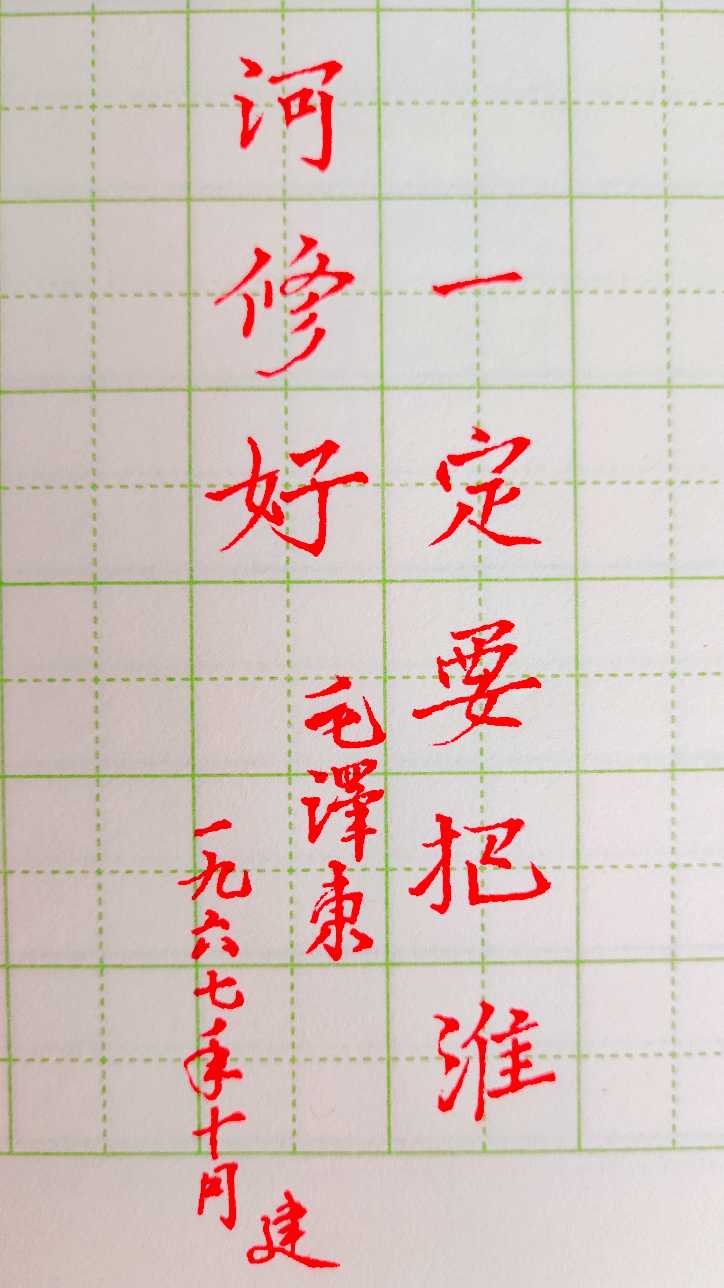 一定要把淮
河修好
毛澤東
一九六七年十月
建